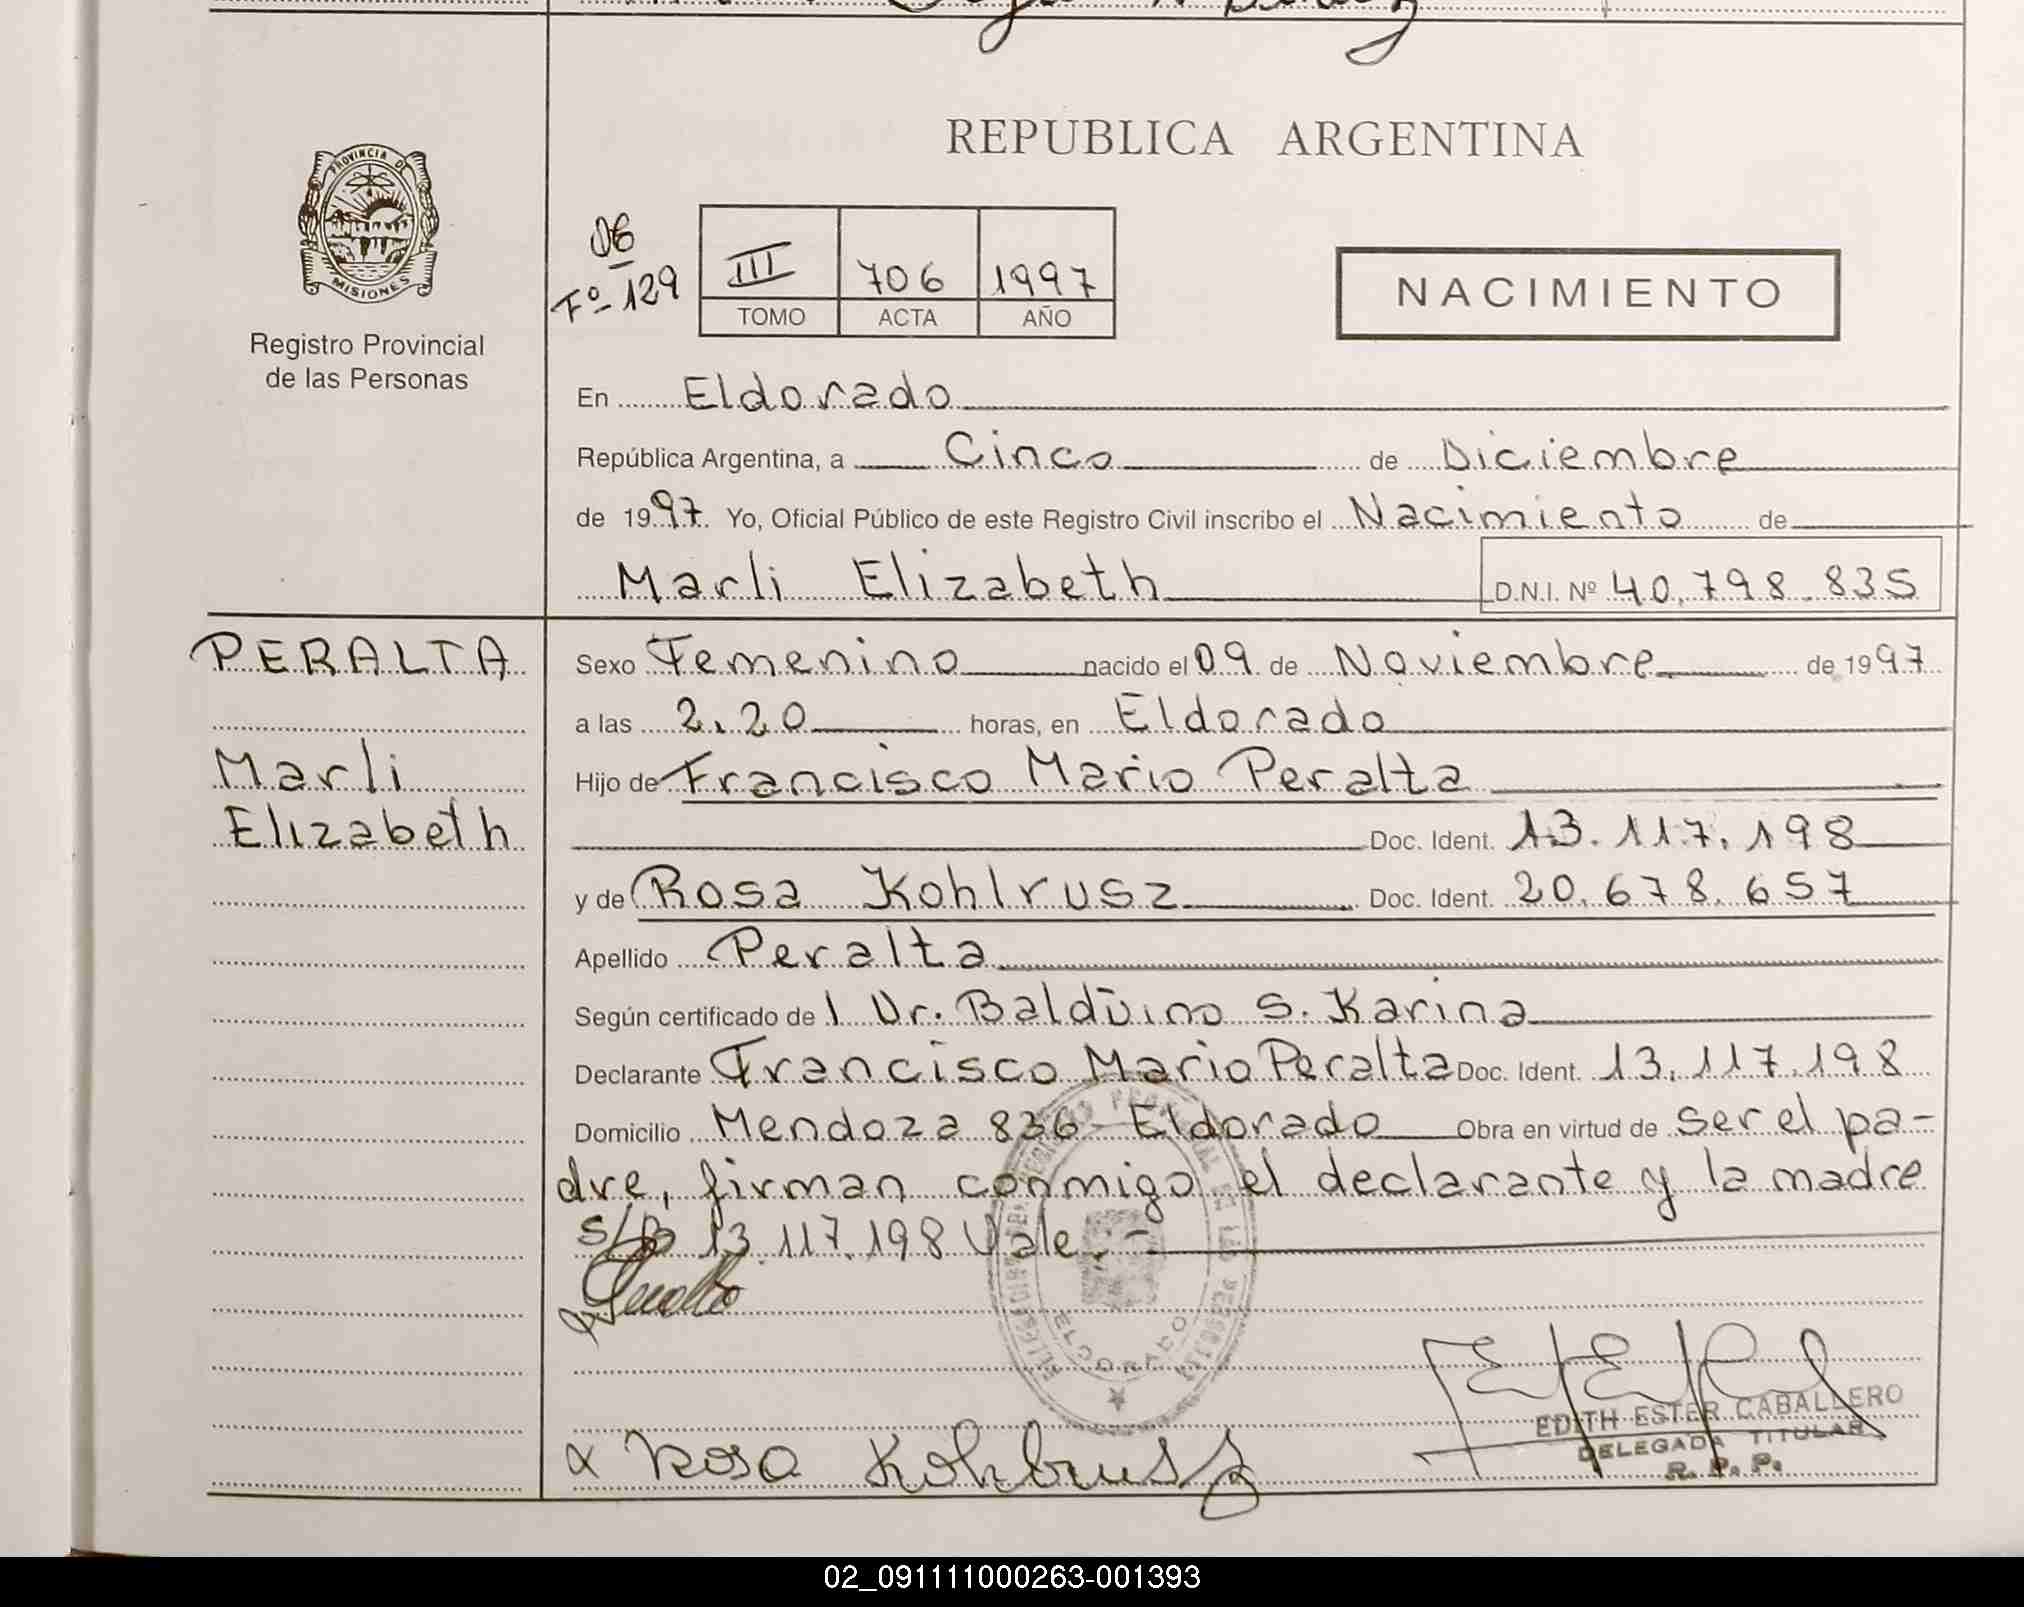 PROVINCIA DE
MISIONES
Registro Provincial
de las Personas
REPUBLICA ARGENTINA
06
Fº 129
III 706 1997
TOMO ACTA AÑO
NACIMIENTO
En Eldorado
República Argentina, a Cinco de Diciembre
de 1997. Yo, Oficial Público de este Registro Civil inscribo el Nacimiento de
Marli Elizabeth D.N.I. Nº 40.798.835
PERALTA Sexo Femenino nacido el 09 de Noviembre de 1997
a las 2.20 horas, en Eldorado
Marli Hijo de Francisco Mario Peralta
Elizabeth Doc. Ident. 13.117.198
y de Rosa Kohlrusz Doc. Ident. 20.678.657
Apellido Peralta
Según certificado de l Dr. Balduino S. Karina
Declarante Francisco Mario Peralta Doc. Ident. 13.117.198
Domicilio Mendoza 836 - Eldorado Obra en virtud de ser el pa-
dre, firman conmigo el declarante y la madre
s/b 13.117.198 Vale.-
ELDORADO
EDITH ESTER CABALLERO
DELEGADA TITULAR
R. P. P.
Rosa Kohlrusz
02_091111000263-001393